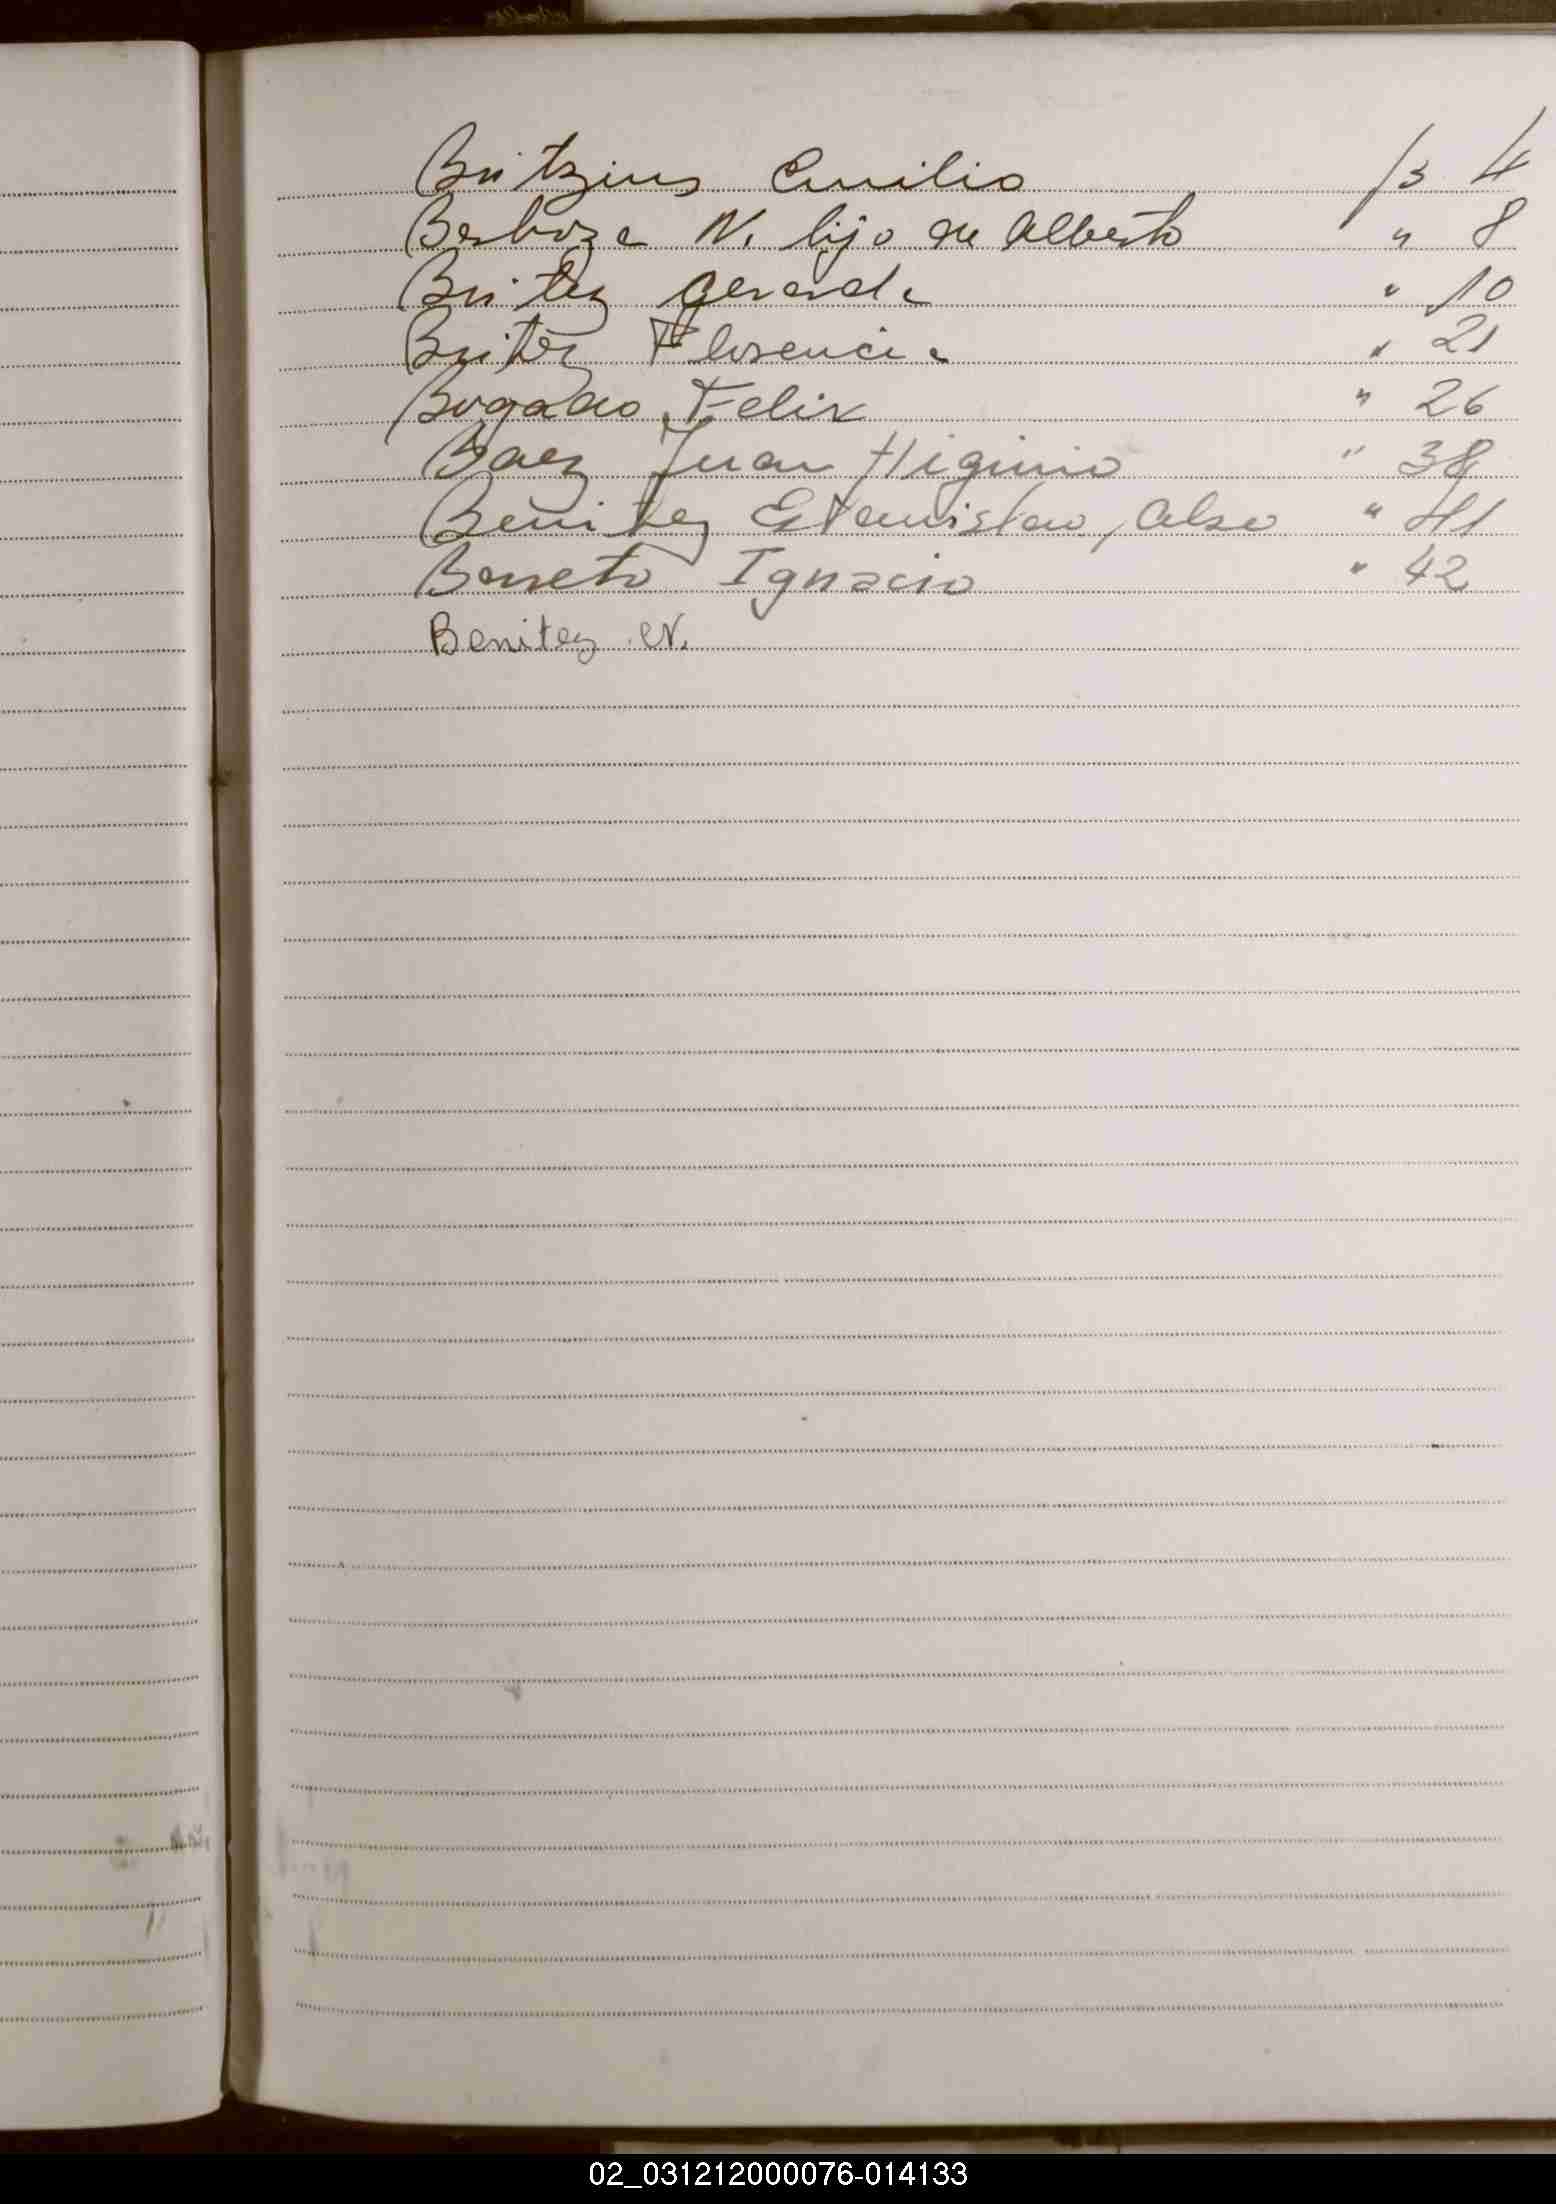 Britzius Emilio fs 4
Barboza N. hijo de Alberto " 8
Britez Gerarda " 10
Britez Florencia " 21
Bogado Felix " 26
Baez Juan Higinio " 38
Benitez Estanislao, Also " 41
Barreto Ignacio " 42
Benitez N.
02_031212000076-014133